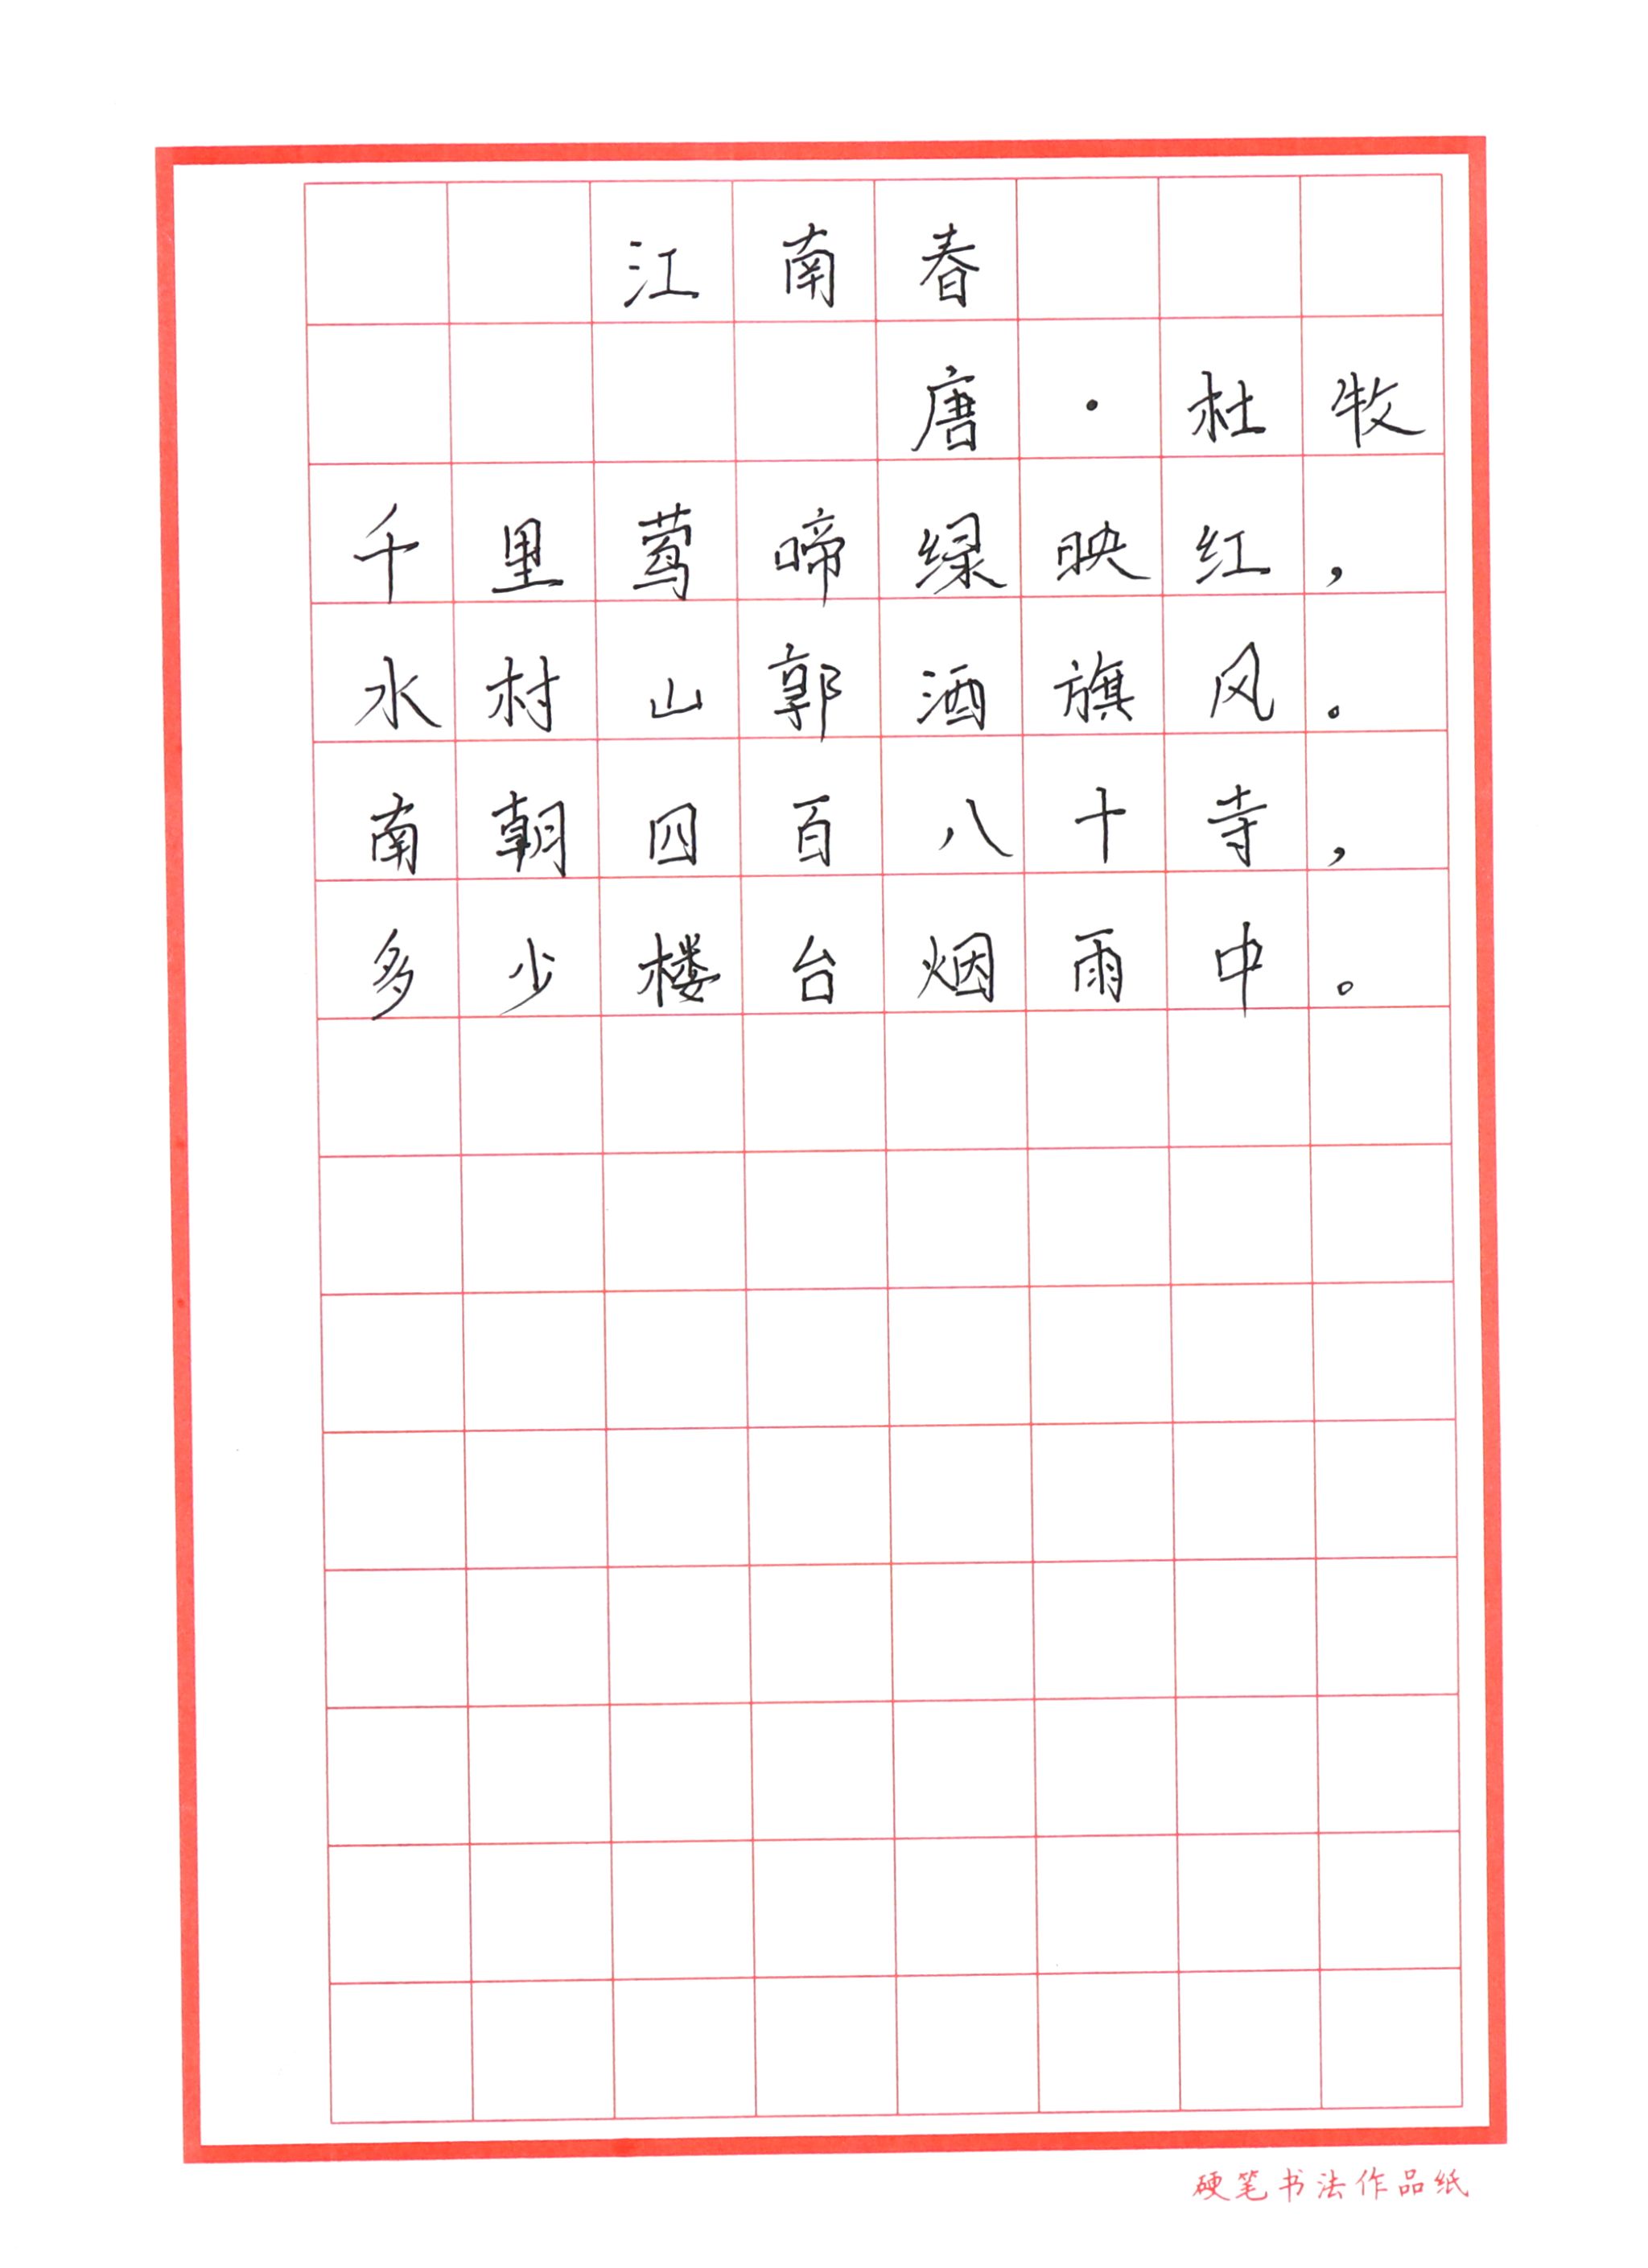 江南春
唐·杜牧
千里莺啼绿映红，
水村山郭酒旗风。
南朝四百八十寺，
多少楼台烟雨中。
硬笔书法作品纸